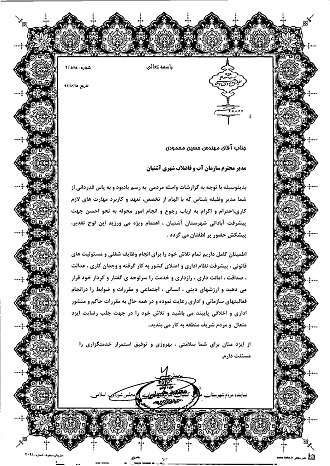 باسمه تعالی
شماره:
تاریخ:
جناب آقای مهندس حسین محمودی
مدیر محترم سازمان آب و فاضلاب شهری آشتیان
بدینوسیله با توجه به گزارشات واصله مردمی به رسم یادبود و به پاس قدردانی از
شما مدیر وظیفه شناس که با الهام از تخصص، تعهد و کاربرد مهارت های لازم
کاری، احترام و اکرام به ارباب رجوع و انجام امور محوله به نحو احسن جهت
پیشرفت آبادانی شهرستان آشتیان ، اهتمام ویژه می ورزید این لوح تقدیر،
پیشکش حضور پر لطفتان می گردد .
اطمینان کامل داریم تمام تلاش خود را برای انجام وظایف شغلی و مسئولیت های
قانونی ، پیشرفت نظام اداری و اعتلای کشور به کار گرفته و وجدان کاری ، عدالت
، صداقت ، امانت داری ، رازداری و خدمت را سرلوحه ی گفتار و کردار خود قرار
می دهید و ارزشهای دینی ، انسانی ، اجتماعی و مقررات و ضوابط را درانجام
فعالیتهای سازمانی و اداری رعایت نموده و در همه حال به مقررات حاکم و منشور
اداری و اخلاقی پایبند می باشید و تلاش خود را در جهت جلب رضایت ایزد
متعال و مردم شریف منطقه به کار می بندید.
از ایزد منان برای شما سلامتی ، بهروزی و توفیق استمرار خدمتگزاری را
مسئلت دارم.
نماینده مردم شهرستان
مجلس شورای اسلامی